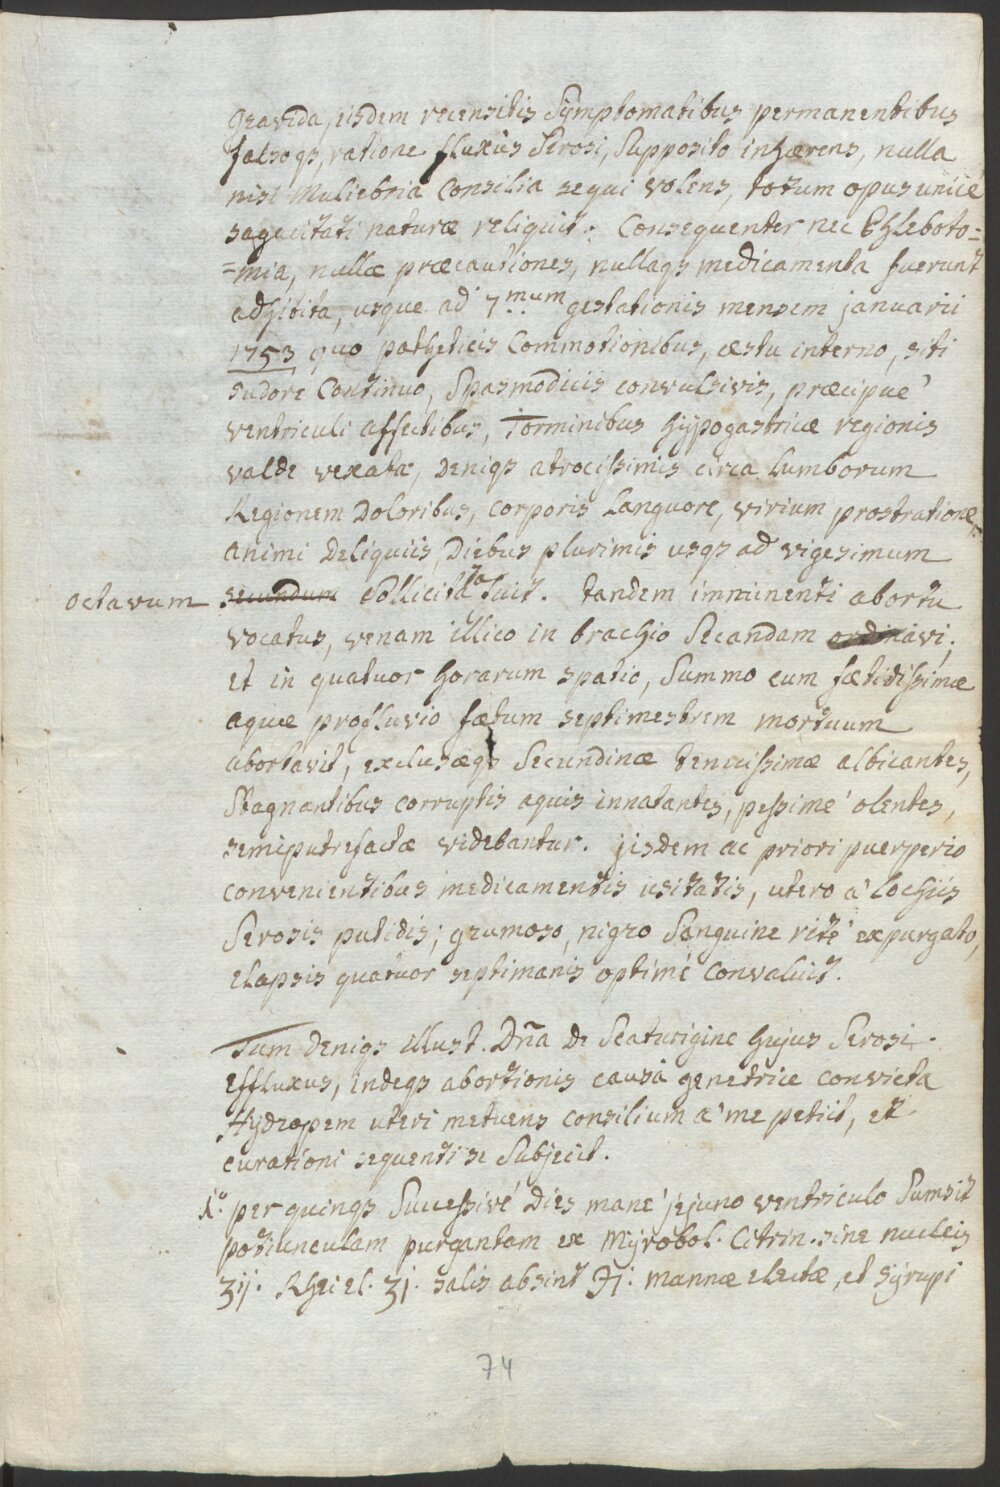 gravida, iisdem recensitis Sÿmptomatibus permanentibus
falsoqs, ratione fluxûs Serosi, Supposito inhærens, nulla
nisi Muliebria Consilia sequi volens, totum opus unicé
sagacitati naturæ reliquit. Consequenter nec Phleboto=
=mia, nullæ præcautiones, nullaqs medicamenta fuerunt
adhibita, usque ad 7mum gestationis mensem januarii
1753 quo patheticis Commotionibus, æstu interno, siti
sudore Continuo, Spasmodicis convulsivis, præcipué
ventriculi affectibus, Torminibus hÿpogastricæ regionis
valde vexata, deniqs atrocissimis circa Lumborum
Regionem Doloribus, corporis Languore, virium prostratione,
animi Deliquiis, Diebus plurimis usqs ad vigesimum
octavum secundum collicitata fuit. tandem imminenti abortu
vocatus, venam illico in brachio Secandam ordinavi;
et in quatuor horarum spatio, Summo cum fœtidissimæ
aquæ profluvio fœtum septimestrem mortuum
abortavit, exclusæqs Secundinæ tenuissimæ albicantes,
Stagnantibus corruptis aquis innatantes, pessimé olentes,
semiputrefactæ videbantur. jisdem ac priori puerperio
convenientibus medicamentis usitatis, utero á Lochiis
Serosis putidis; grumoso, nigro Sanguine rité expurgato,
elapsis quatuor septimanis optimé convaluit.
Tum deniqs illust. Dña de Scaturigine hujus Serosi
effluxus, indeqs abortionis causâ genetrice convicta
Hydropem uteri metuens consilium á me petiit, et
curationi sequenti se Subjecit.
1.º per quinqs Successivé Dies mané jejuno ventriculo Sumsit
potiunculam purgantem ex Mÿrobol. Citrin. sine nucleis
ʒij. Rhei el. ʒj. salis absint ℈j. mannæ electæ, et Sÿrupi
74